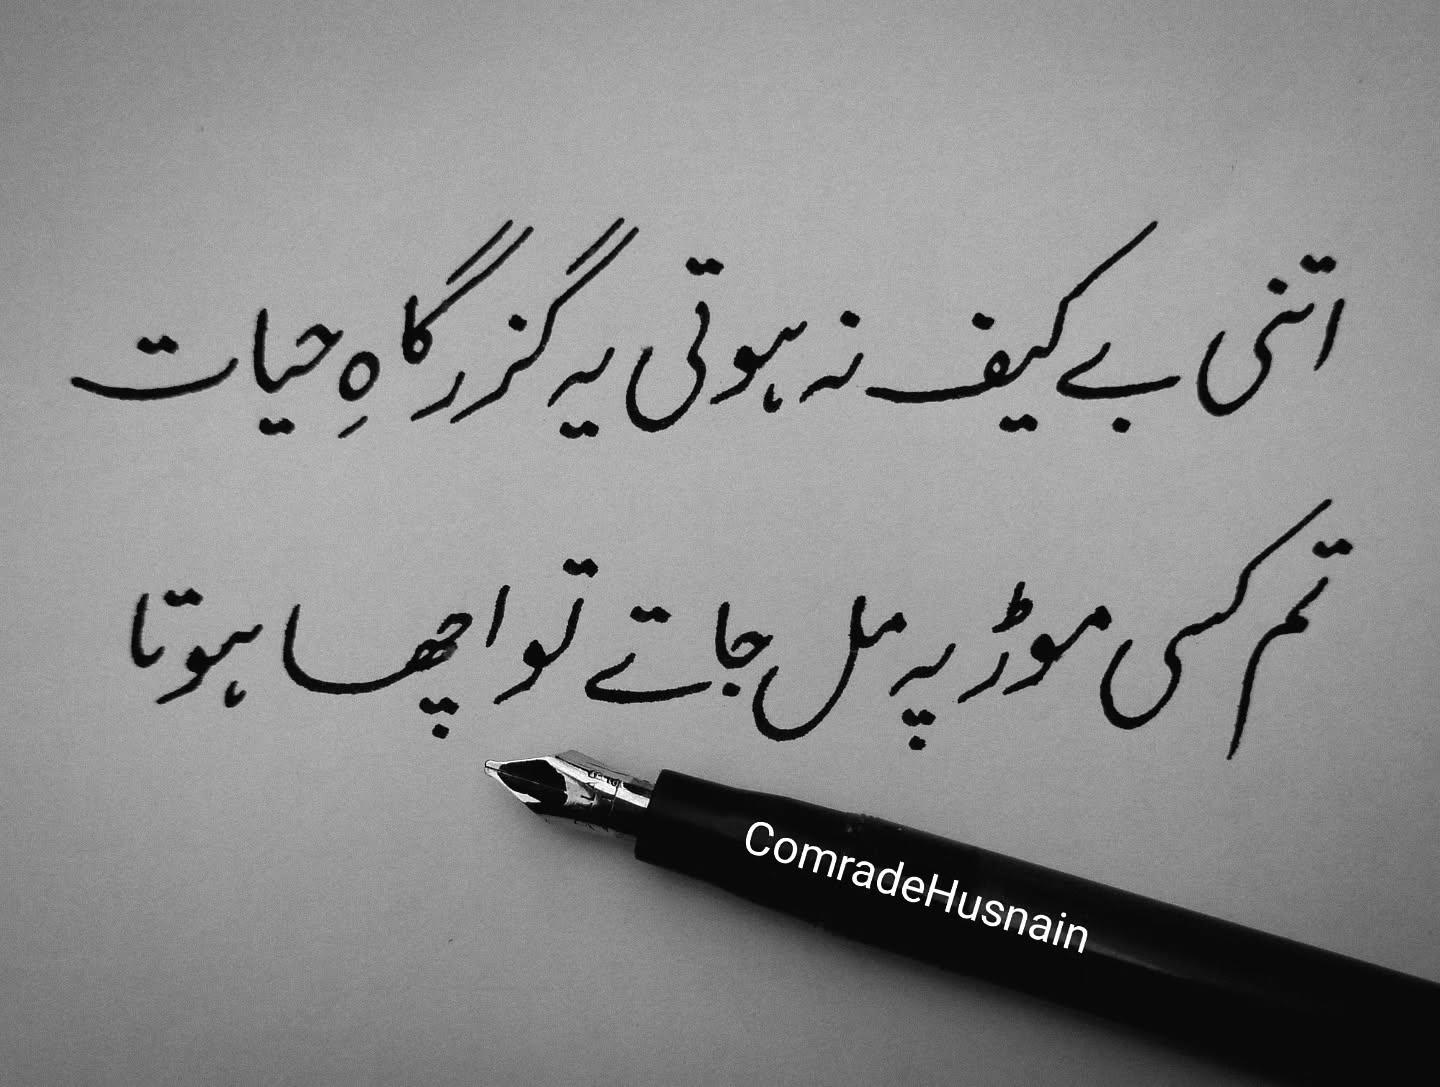 اتنی بے کیف نہ ہوتی یہ گزرگاہِ حیات
تم کسی موڑ پہ مل جاتے تو اچھا ہوتا
ComradeHusnain